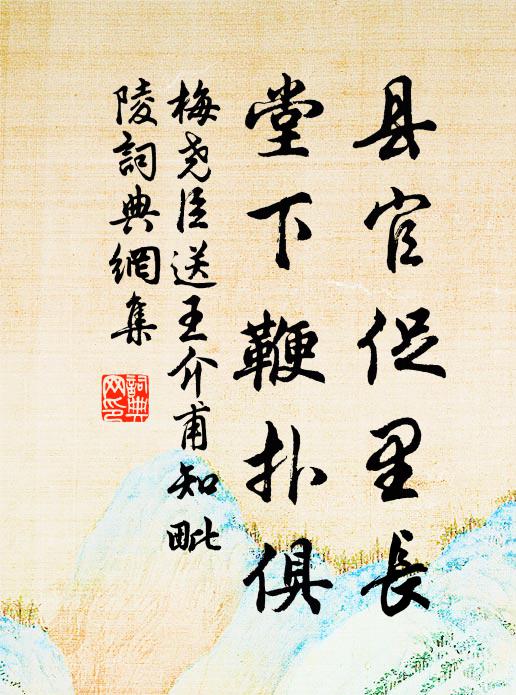 县官促里长
堂下鞭扑俱
梅尧臣送王介甫知毗
陵詞典網集
詞典
网印